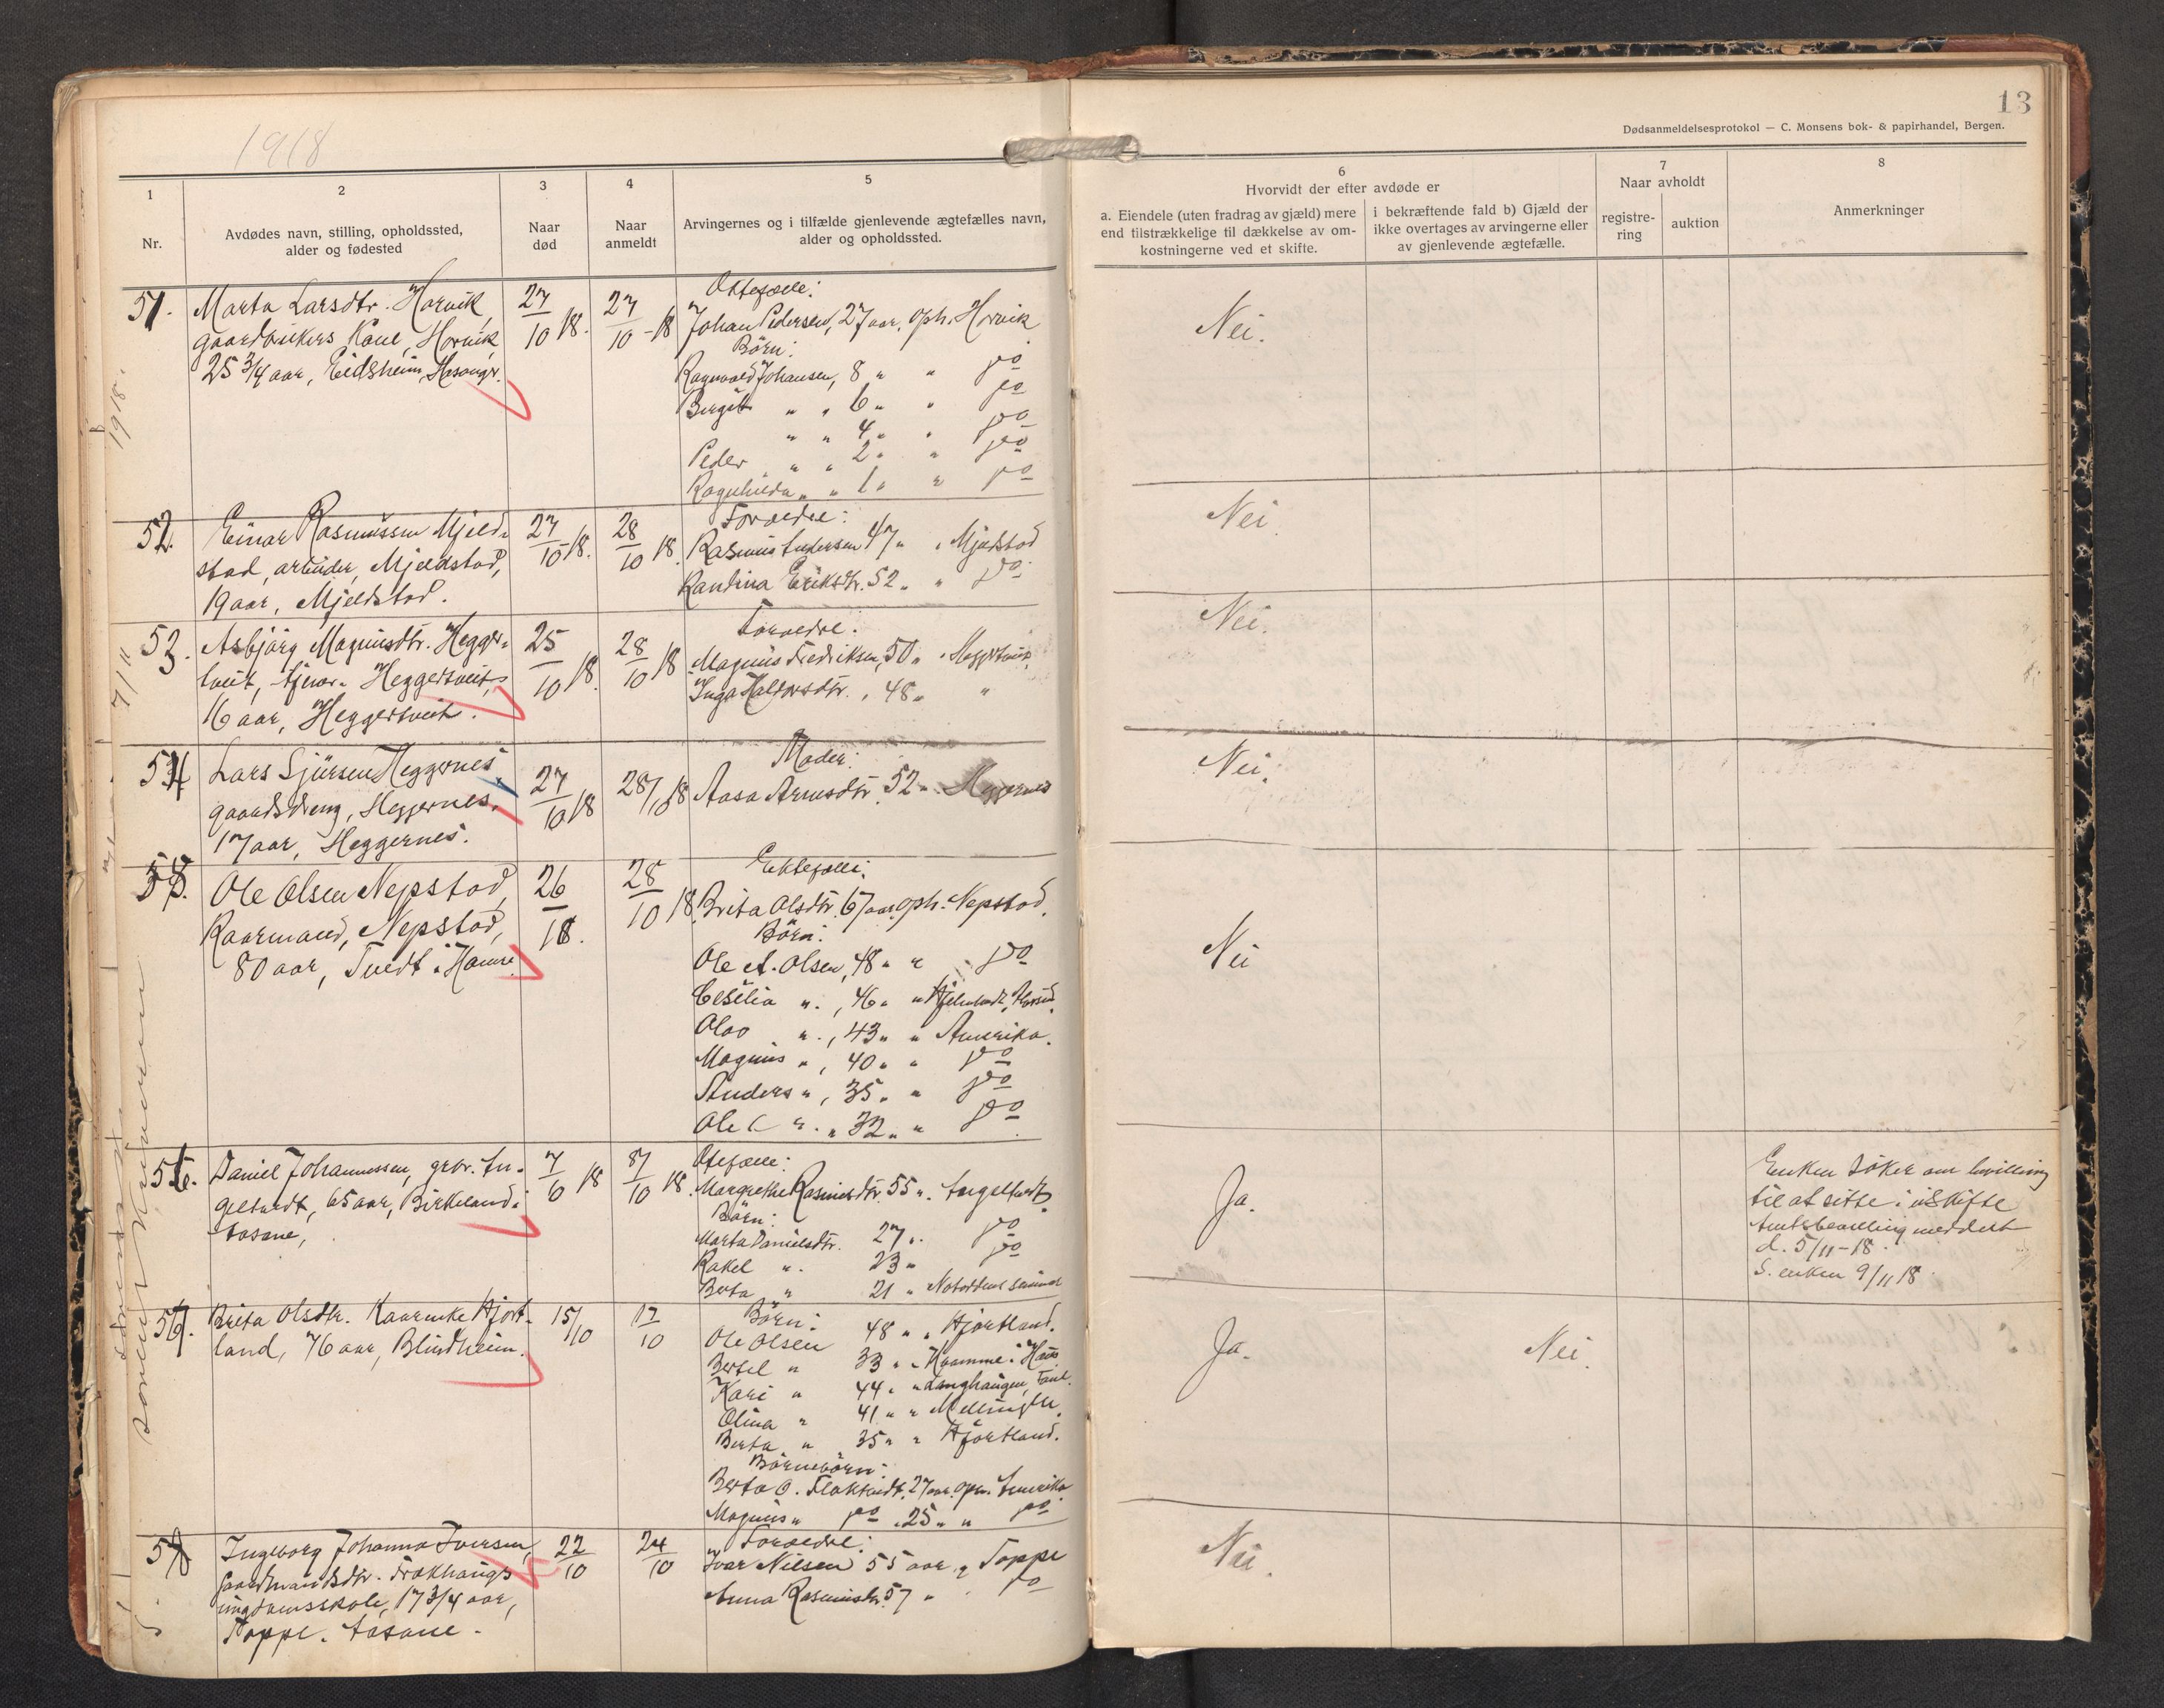 1918
13
Dødsanmeldelsesprotokol — C. Monsens bok- & papirhandel, Bergen.
1
Nr.
2
Avdødes navn, stilling, opholdssted,
alder og fødested
3
Naar
død
4
Naar
anmeldt
5
Arvingernes og i tilfælde gjenlevende ægtefælles navn,
alder og opholdssted.
6
Hvorvidt der efter avdøde er
a. Eiendele (uten fradrag av gjæld) mere
end tilstrækkelige til dækkelse av om-
kostningerne ved et skifte.
i bekræftende fald b) Gjæld der
ikke overtages av arvingerne eller
av gjenlevende ægtefælle.
7
Naar avholdt
registre-
ring
auktion
8
Anmerkninger
51.
Marta Larsdtr. Horvik
gaardbrukers Kone, Horvik
25 3/4 aar, Eidsheim,
27/10 18.
27/10-18
Ektefælle:
Johan Pedersen, 27 aar, oph. Horvik
Börn:
Ragnvald Johansen, 8 " " do
Birgit " " 6 " " do
" " 4 " " do
Peder " " 2 " " do
Ragnhilda " " 1 " " do
Nei.
52.
Einar Rasmussen Mjeld-
stad, arbeider, Mjeldstad,
19 aar, Mjeldstad.
27/10-18.
28/10 18
Foraeldre:
Rasmus Andersen 47 " " Mjeldstad
Randina Eriksdtr. 52 " " do
Nei
53.
Asbjörg Magnusdtr. Hegger-
tveit, tjener. Heggertveit,
16 aar, Heggertveit.
25/10 18.
28/10 18
Foraeldre:
Magnus Fredriksen, 50 " "
Inga Haldorsdtr., 48 " "
Nei.
54
Lars Sjursen Heggernes
gaardsdreng, Heggernes,
17 aar, Heggernes.
27/10 18
28/10 18
Moder:
Aasa Arnesdtr. 52 " Heggernes
Nei.
55.
Ole Olsen Nepstad,
Kaarmand, Nepstad,
80 aar, Tvedt i Hamre.
26/18.
28/10 18.
Ektefælle:
Brita Olsdtr. 67 aar, oph. Nepstad.
Börn:
Ole A. Olsen, 48 " " do
Cesilia " , 46 " "
Olav " , 43 " " Amerika.
Magnus " , 40 " " do
Anders " , 35 " " do
Ole C " " 32 " " do
Nei
56.
Daniel Johannessen, gbr. An-
geltvedt, 65 aar, Birkeland i
Aasane,
7/10 18
8/10 18.
Ektefælle:
Margrethe Rasmusdtr. 55 " Angeltvedt.
Börn:
Marta Danielsdtr. 27 " do
Rakel " 23 " do
Berta " 21 " Notoddens seminar
Ja.
Enken söker om bevilling
til at sitte i uskifte
Amtsbevilling meddelt
d. 5/11-18.
S. enken 9/11 18
57.
Brita Olsdtr. Kaarenke Hjort-
land, 76 aar, Blindheim.
15/10
17/10
Börn:
Ole Olsen 48 " " Hjortland.
Bertel " 33 " "
Kari " 44 " " Langhaugen,
Olina " 41 " " Mellingen.
Berta " 35 " " Hjortland.
Börnebörn:
Berta O. Flaktvedt, 27 aar, oph. Amerika
Magnus " do 25 " " do
Ja.
Nei.
58
Ingeborg Johanna Iversen,
gaardmandsdtr. Frakhaugs
ungdomsskole, 17 3/4 aar,
Toppe. Aasane.
22/10
24/10
Foraeldre:
Ivar Nilsen 55 aar, Toppe
Anna Rasmusdtr. 57 " do
Nei.